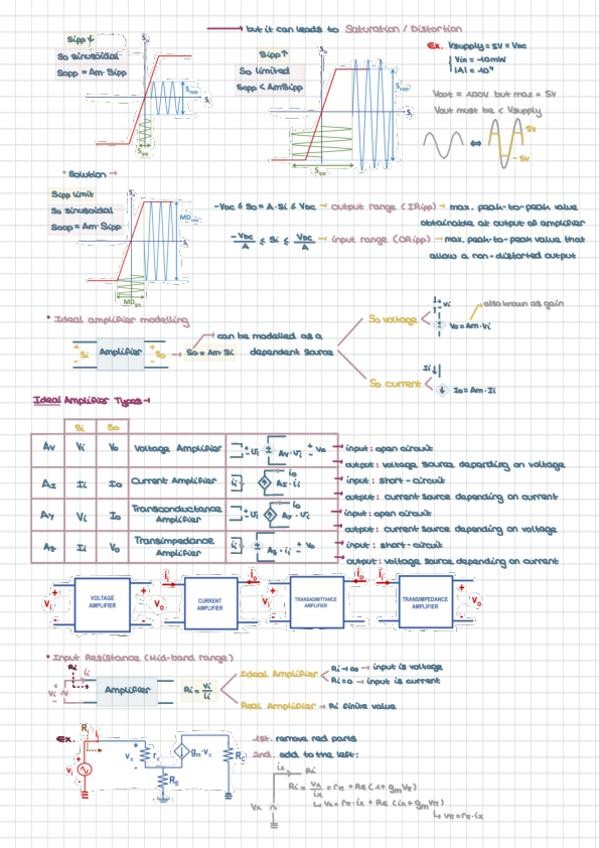 → but it can leads to Saturation / Distortion
Sipp↓
So sinusoidal
Sopp = Am·Sipp
Sipp↑
So limited
Sopp < AmSipp
Ex. Vsupply = 5V = VDC
Vin = -10mV
|A| = 10⁴
Vout = 100V but max = 5V
Vout must be < Vsupply
5V
-5V
Solution →
Sipp limit
So sinusoidal
Sopp = Am·Sipp
-VDC ≤ So = A·Si ≤ VDC → output range (IRipp) → max. peak-to-peak value
obtainable at output of amplifier
-VDC/A ≤ Si ≤ VDC/A → input range (ORipp) → max. peak-to-peak value that
allow a non-distorted output
* Ideal amplifier modelling
can be modelled as a
dependent source
Si Amplifier So → So = Am·Si
So voltage
Vi
also known as gain
Vo = Am·Vi
So current
Ii
Io = Am·Ii
Ideal Amplifier Types →
Si So
Av Vi Vo Voltage Amplifier Vi Av·Vi Vo
input: open circuit
output: voltage source depending on voltage
AI Ii Io Current Amplifier ii AI·ii io
input: short-circuit
output: current source depending on current
AY Vi Io Transconductance Amplifier Vi AY·Vi io
input: open circuit
output: current source depending on voltage
AZ Ii Vo Transimpedance Amplifier ii AZ·ii Vo
input: short-circuit
output: voltage source depending on current
Vi VOLTAGE AMPLIFIER Vo
ii CURRENT AMPLIFIER io
Vi TRANSADMITTANCE AMPLIFIER io
ii TRANSIMPEDANCE AMPLIFIER Vo
* Input Resistance (Mid-band range)
Ri
Vi ii Amplifier Ri = Vi/ii
Ideal Amplifier
Ri→∞ → input is voltage
Ri=0 → input is current
Real Amplifier → Ri finite value
Ex.
Ri ii
vi vπ rπ gm·vπ RC
RE
1st. remove red parts
2nd. add to the left:
ix Ri
Ri = vx/ix = rπ + RE(1+gmrπ)
↳ vx = rπ·ix + RE(ix+gmvπ)
↳ vπ = rπ·ix
Vx